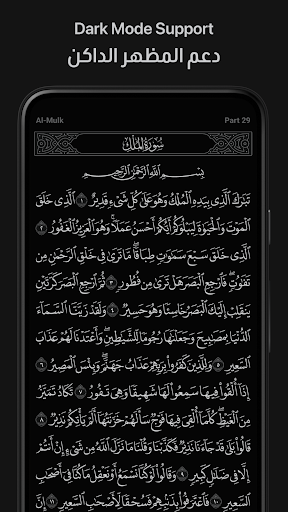 Dark Mode Support
دعم المظهر الداكن
Al-Mulk Part 29
سُورَةُ المُلْكِ
بِسْمِ ٱللَّهِ ٱلرَّحْمَٰنِ ٱلرَّحِيمِ
تَبَٰرَكَ ٱلَّذِي بِيَدِهِ ٱلْمُلْكُ وَهُوَ عَلَىٰ كُلِّ شَيْءٍ قَدِيرٌ ١ ٱلَّذِي خَلَقَ
ٱلْمَوْتَ وَٱلْحَيَوٰةَ لِيَبْلُوَكُمْ أَيُّكُمْ أَحْسَنُ عَمَلًا ۚ وَهُوَ ٱلْعَزِيزُ ٱلْغَفُورُ
٢ ٱلَّذِي خَلَقَ سَبْعَ سَمَٰوَٰتٍ طِبَاقًا ۖ مَّا تَرَىٰ فِي خَلْقِ ٱلرَّحْمَٰنِ مِن
تَفَٰوُتٍ ۖ فَٱرْجِعِ ٱلْبَصَرَ هَلْ تَرَىٰ مِن فُطُورٍ ٣ ثُمَّ ٱرْجِعِ ٱلْبَصَرَ كَرَّتَيْنِ
يَنقَلِبْ إِلَيْكَ ٱلْبَصَرُ خَاسِئًا وَهُوَ حَسِيرٌ ٤ وَلَقَدْ زَيَّنَّا ٱلسَّمَآءَ
ٱلدُّنْيَا بِمَصَٰبِيحَ وَجَعَلْنَٰهَا رُجُومًا لِّلشَّيَٰطِينِ ۖ وَأَعْتَدْنَا لَهُمْ عَذَابَ
ٱلسَّعِيرِ ٥ وَلِلَّذِينَ كَفَرُوا۟ بِرَبِّهِمْ عَذَابُ جَهَنَّمَ ۖ وَبِئْسَ ٱلْمَصِيرُ ٦
إِذَآ أُلْقُوا۟ فِيهَا سَمِعُوا۟ لَهَا شَهِيقًا وَهِيَ تَفُورُ ٧ تَكَادُ تَمَيَّزُ
مِنَ ٱلْغَيْظِ ۖ كُلَّمَآ أُلْقِيَ فِيهَا فَوْجٌ سَأَلَهُمْ خَزَنَتُهَآ أَلَمْ يَأْتِكُمْ نَذِيرٌ ٨
قَالُوا۟ بَلَىٰ قَدْ جَآءَنَا نَذِيرٌ فَكَذَّبْنَا وَقُلْنَا مَا نَزَّلَ ٱللَّهُ مِن شَيْءٍ إِنْ أَنتُمْ
إِلَّا فِي ضَلَٰلٍ كَبِيرٍ ٩ وَقَالُوا۟ لَوْ كُنَّا نَسْمَعُ أَوْ نَعْقِلُ مَا كُنَّا فِيٓ أَصْحَٰبِ
ٱلسَّعِيرِ ١٠ فَٱعْتَرَفُوا۟ بِذَنۢبِهِمْ فَسُحْقًا لِّأَصْحَٰبِ ٱلسَّعِيرِ ١١